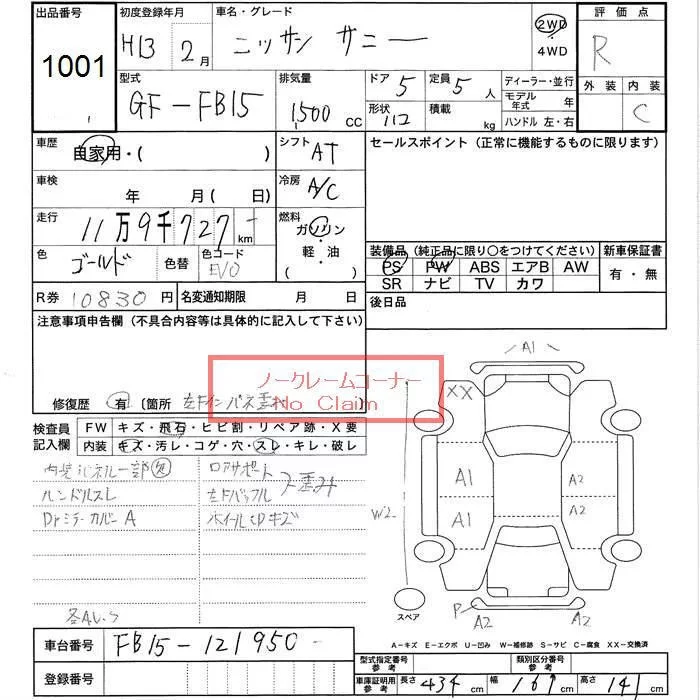 出品番号 初度登録年月 車名・グレード 評価点
1001 H13 2月 ニッサン サニー 2WD R
・4WD
型式 排気量 ドア 5 定員 5人 ディーラー・並行 外装 内装
GF-FB15 1500 CC 形状 積載 kg モデル年式 年 C
ハンドル 左・右
車歴 自家用・( ) シフト AT セールスポイント(正常に機能するものに限ります)
車検 年 月(日) 冷房 A/C
走行 11万9千727 km 燃料 ガソリン
軽・油
( )
色 ゴールド 色替 色コード EV0
装備品(純正品に限り〇をつけてください) 新車保証書
PS PW ABS エアB AW 有・無
SR ナビ TV カワ
R券 10830円 名変通知期限 月 日 後日品
注意事項申告欄(不具合内容等は具体的に記入して下さい)
ノークレームコーナー
No Claim
修復歴 有 〔箇所
A1
XX
検査員記入欄 FW キズ・飛石・ヒビ割・リペア跡・X要
内装 キズ・汚レ・コゲ・穴・スレ・キレ・破レ
ロアサポート
ハンドルスレ
Drミラーカバー A
ホイールCDキズ
A1 A2
A1 A2
W2
スペア
P A2 A2
A-キズ E-エクボ U-凹み W-補修跡 S-サビ C-腐食 XX-交換済
車台番号 FB15-121950
登録番号
型式指定番号 参考 類別区分番号 参考
車庫証明用参考 長さ 434 cm 幅 169 cm 高さ 141 cm